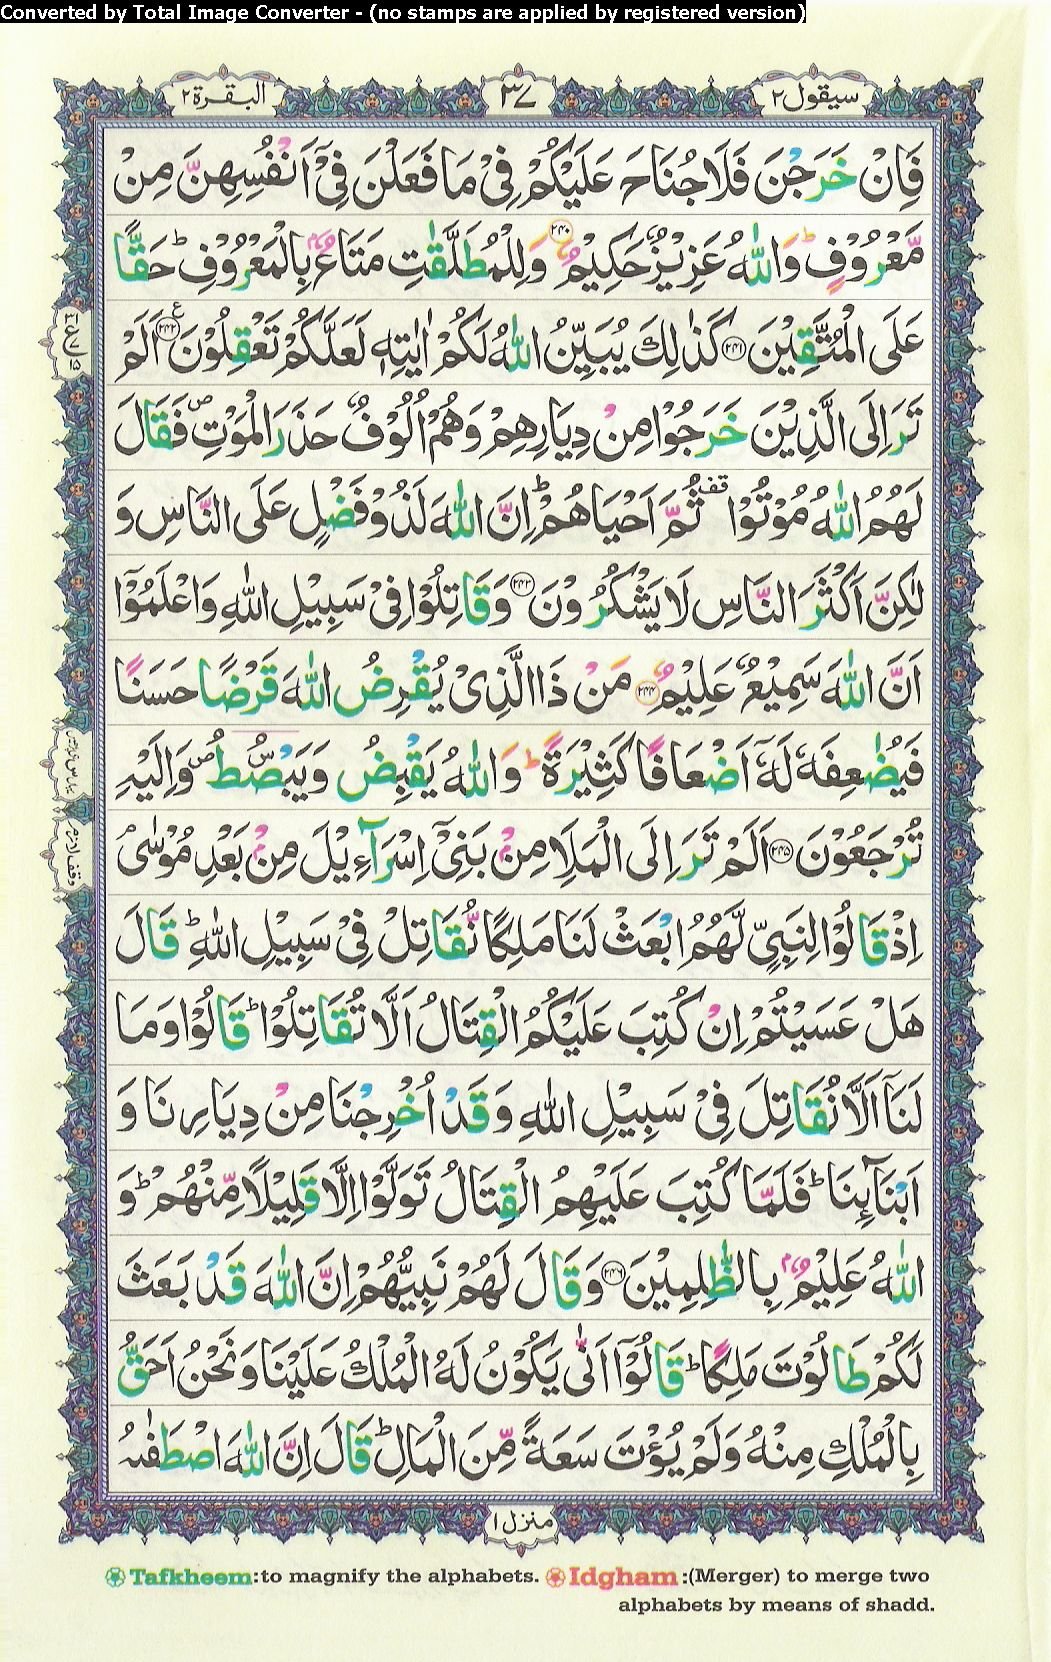 Converted by Total Image Converter - (no stamps are applied by registered version)
سيقول٢ ٣٧ البقرة٢
فَاِنْ خَرَجْنَ فَلَا جُنَاحَ عَلَيْكُمْ فِيْ مَا فَعَلْنَ فِيْٓ اَنْفُسِهِنَّ مِنْ
مَّعْرُوْفٍ ؕ وَاللّٰهُ عَزِيْزٌ حَكِيْمٌ ۝۲۴۰ وَلِلْمُطَلَّقٰتِ مَتَاعٌۢ بِالْمَعْرُوْفِ ؕ حَقًّا
عَلَى الْمُتَّقِيْنَ ۝۲۴۱ كَذٰلِكَ يُبَيِّنُ اللّٰهُ لَكُمْ اٰيٰتِهٖ لَعَلَّكُمْ تَعْقِلُوْنَ ۝۲۴۲ اَلَمْ
تَرَ اِلَى الَّذِيْنَ خَرَجُوْا مِنْ دِيَارِهِمْ وَهُمْ اُلُوْفٌ حَذَرَ الْمَوْتِ ۪ فَقَالَ
لَهُمُ اللّٰهُ مُوْتُوْا قف ثُمَّ اَحْيَاهُمْ ؕ اِنَّ اللّٰهَ لَذُوْ فَضْلٍ عَلَى النَّاسِ وَ
لٰكِنَّ اَكْثَرَ النَّاسِ لَا يَشْكُرُوْنَ ۝۲۴۳ وَقَاتِلُوْا فِيْ سَبِيْلِ اللّٰهِ وَاعْلَمُوْٓا
اَنَّ اللّٰهَ سَمِيْعٌ عَلِيْمٌ ۝۲۴۴ مَنْ ذَا الَّذِيْ يُقْرِضُ اللّٰهَ قَرْضًا حَسَنًا
فَيُضٰعِفَهٗ لَهٗٓ اَضْعَافًا كَثِيْرَةً ؕ وَاللّٰهُ يَقْبِضُ وَيَبْصُۜطُ ۪ وَاِلَيْهِ
تُرْجَعُوْنَ ۝۲۴۵ اَلَمْ تَرَ اِلَى الْمَلَاِ مِنْۢ بَنِيْٓ اِسْرَآءِيْلَ مِنْۢ بَعْدِ مُوْسٰى ۘ
اِذْ قَالُوْا لِنَبِيٍّ لَّهُمُ ابْعَثْ لَنَا مَلِكًا نُّقَاتِلْ فِيْ سَبِيْلِ اللّٰهِ ؕ قَالَ
هَلْ عَسَيْتُمْ اِنْ كُتِبَ عَلَيْكُمُ الْقِتَالُ اَلَّا تُقَاتِلُوْا ؕ قَالُوْا وَمَا
لَنَآ اَلَّا نُقَاتِلَ فِيْ سَبِيْلِ اللّٰهِ وَقَدْ اُخْرِجْنَا مِنْ دِيَارِنَا وَ
اَبْنَآىِٕنَا ؕ فَلَمَّا كُتِبَ عَلَيْهِمُ الْقِتَالُ تَوَلَّوْا اِلَّا قَلِيْلًا مِّنْهُمْ ؕ وَ
اللّٰهُ عَلِيْمٌۢ بِالظّٰلِمِيْنَ ۝۲۴۶ وَقَالَ لَهُمْ نَبِيُّهُمْ اِنَّ اللّٰهَ قَدْ بَعَثَ
لَكُمْ طَالُوْتَ مَلِكًا ؕ قَالُوْٓا اَنّٰى يَكُوْنُ لَهُ الْمُلْكُ عَلَيْنَا وَنَحْنُ اَحَقُّ
بِالْمُلْكِ مِنْهُ وَلَمْ يُؤْتَ سَعَةً مِّنَ الْمَالِ ؕ قَالَ اِنَّ اللّٰهَ اصْطَفٰىهُ
منزل١
Tafkheem:to magnify the alphabets. Idgham :(Merger) to merge two
alphabets by means of shadd.